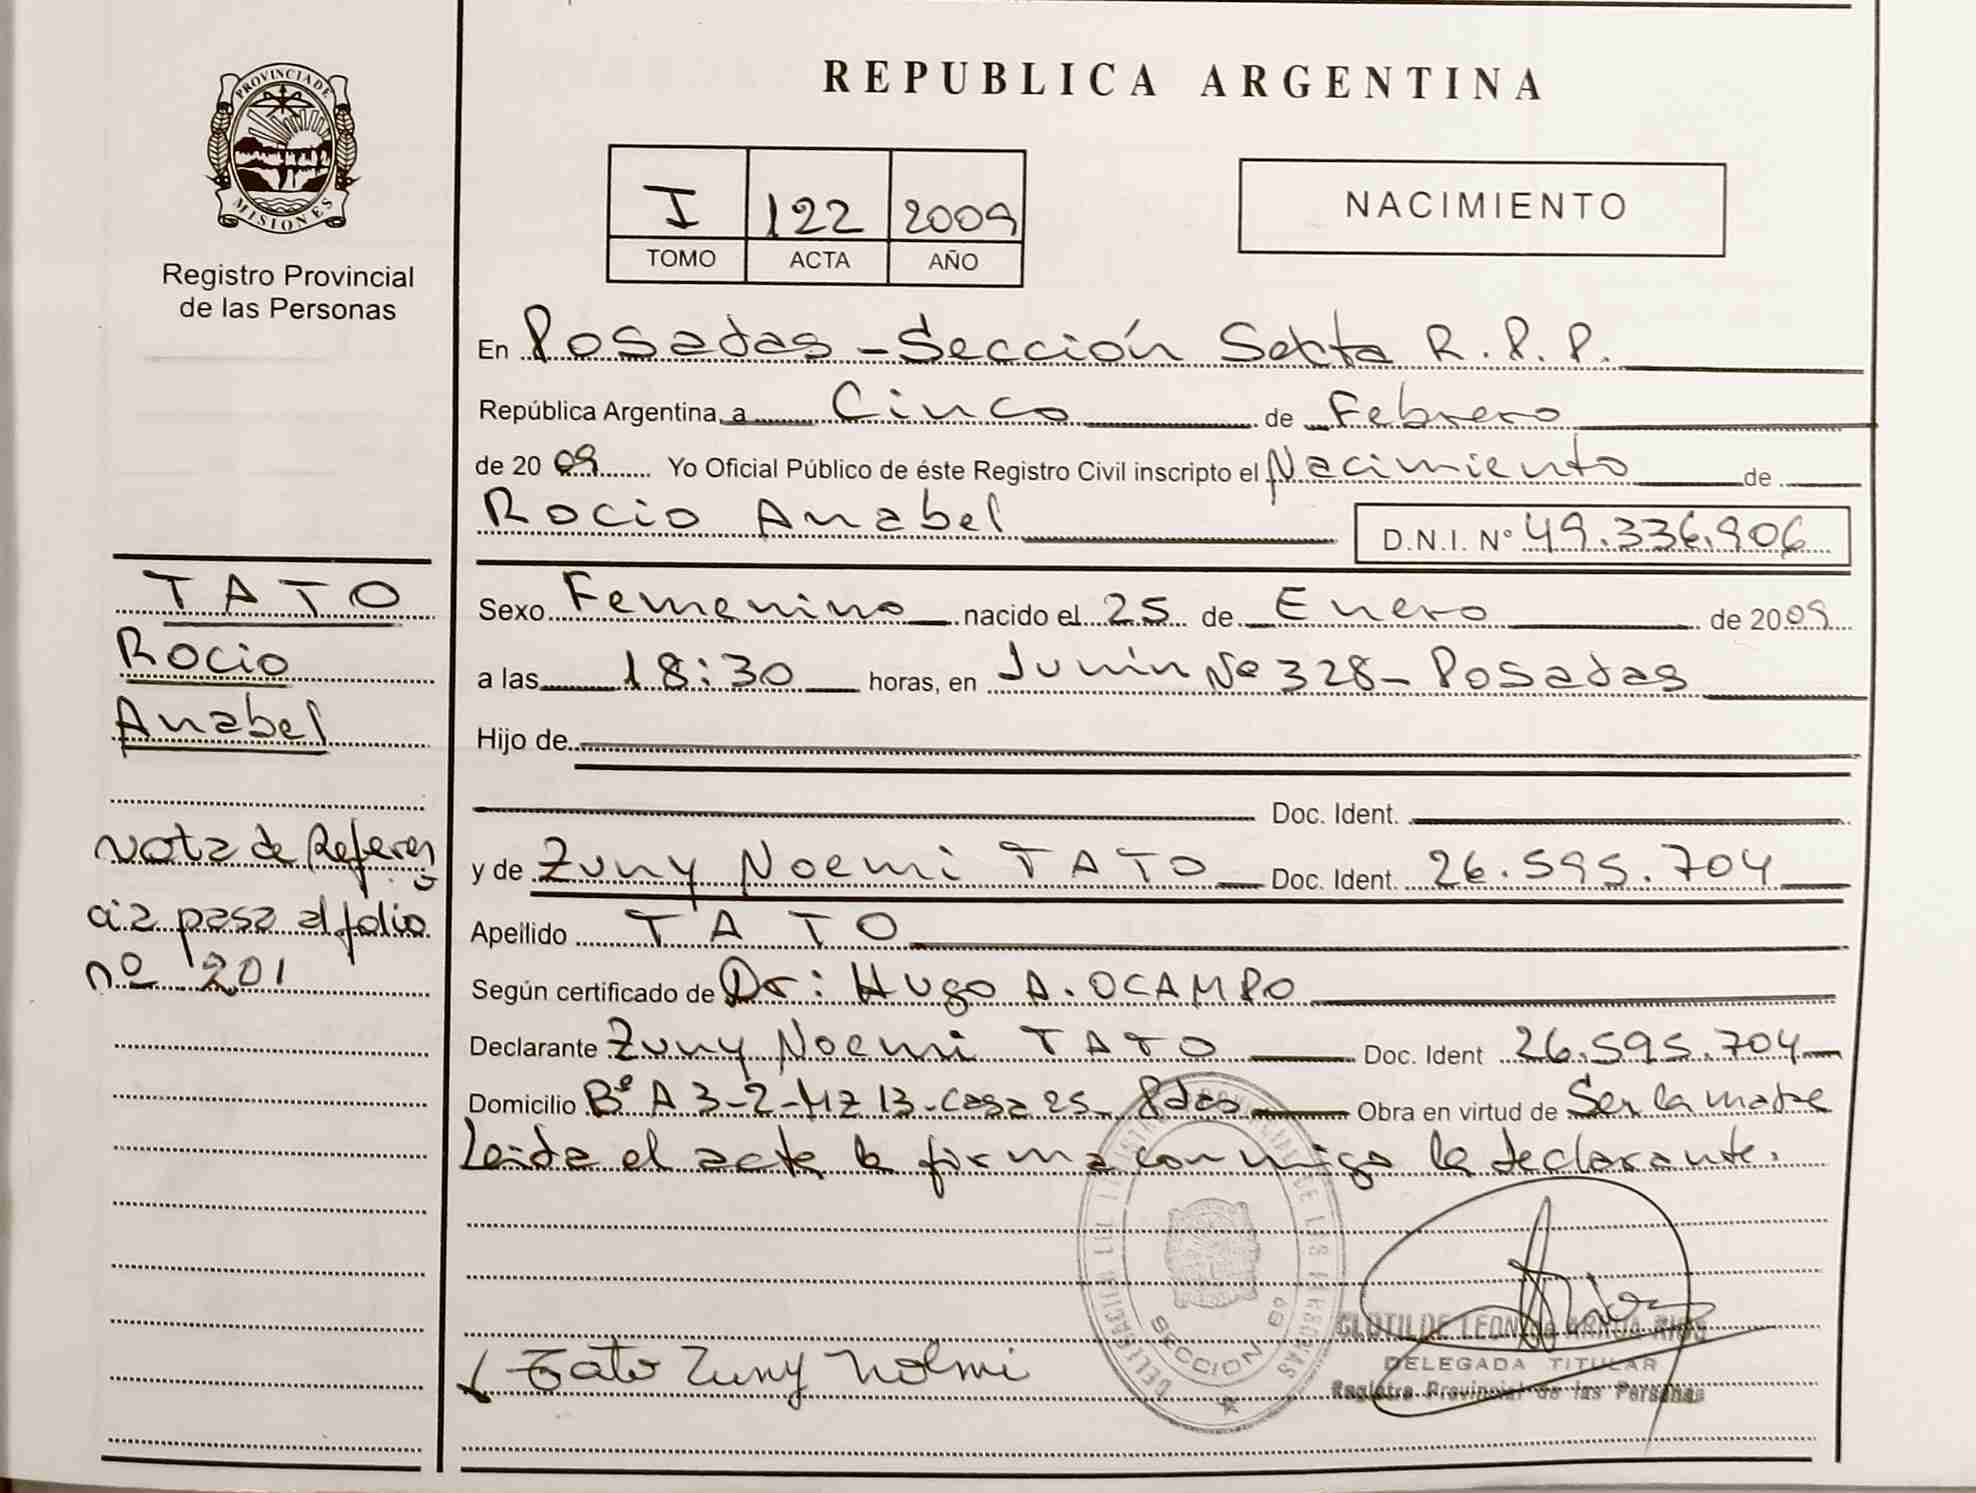 PROVINCIA DE
MISIONES
Registro Provincial
de las Personas
TATO
Rocio
Anabel
Nota de Referen
cia pasa al folio
nº 201
REPUBLICA ARGENTINA
I 122 2009
TOMO ACTA AÑO
NACIMIENTO
En Posadas - Sección Sexta R.P.P.
República Argentina, a Cinco de Febrero
de 2009 Yo Oficial Público de éste Registro Civil inscripto el Nacimiento de
Rocio Anabel D.N.I. Nº 49.336.906
Sexo Femenino nacido el 25 de Enero de 2009
a las 18:30 horas, en Junín Nº 328 - Posadas
Hijo de
Doc. Ident.
y de Zuny Noemi TATO Doc. Ident. 26.595.704
Apellido TATO
Según certificado de Dr: Hugo A. OCAMPO
Declarante Zuny Noemi TATO Doc. Ident 26.595.704
Domicilio Bº A 3-2-Mz 13-Casa 25- Pdas Obra en virtud de Ser la madre
Leida el acta la firma conmigo la declarante.
SECCION 6º
Tato Zuny Nolmi
DELEGADA TITULAR
Registro Provincial de las Personas